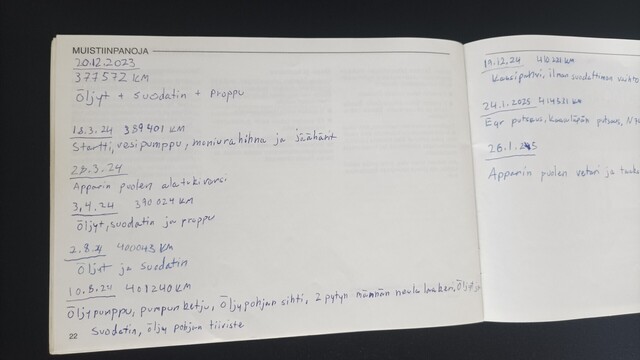 MUISTIINPANOJA
20.12.2023
377572 KM
Öljyt + suodatin + proppu
18.3.24 389401 KM
Startti, vesipumppu, moniurahihna ja jäähärit
28.3.24
Apparin puolen alatukivarsi
3.4.24 390024 KM
Öljyt, suodatin ja proppu
2.8.24 400045 KM
Öljyt ja suodatin
10.8.24 401240 KM
Öljypumppu, pumpun ketju, Öljypohjan sihti, 2 pytyn männän neulalaakeri, Öljyt
Suodatin, öljy pohjan tiiviste
22
19.12.24
Kaasipolttvi, ilman suodattimen vaihto
24.1.2025 414531 KM
Egr putsaus, Kaasuläpän putsaus,
26.1.25
Apparin puolen vetari ja